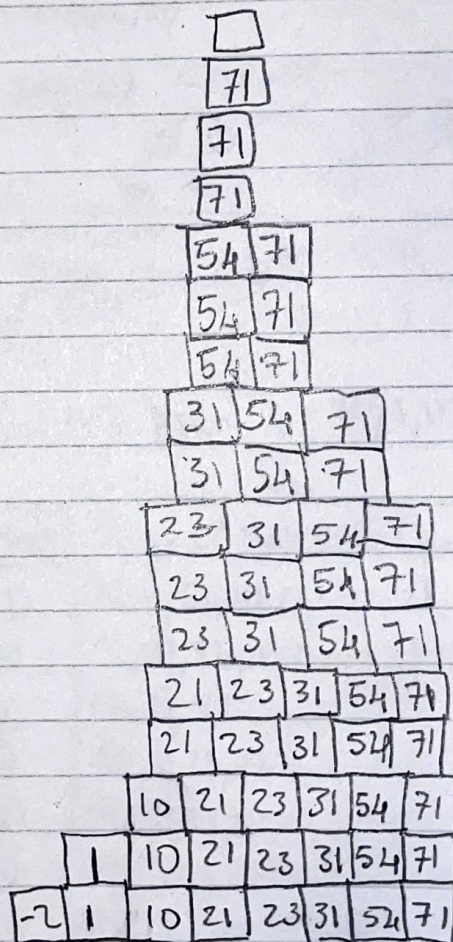 71
71
71
54 71
54 71
54 71
31 54 71
31 54 71
23 31 54 71
23 31 54 71
23 31 54 71
21 23 31 54 71
21 23 31 54 71
10 21 23 31 54 71
1 10 21 23 31 54 71
-2 1 10 21 23 31 54 71